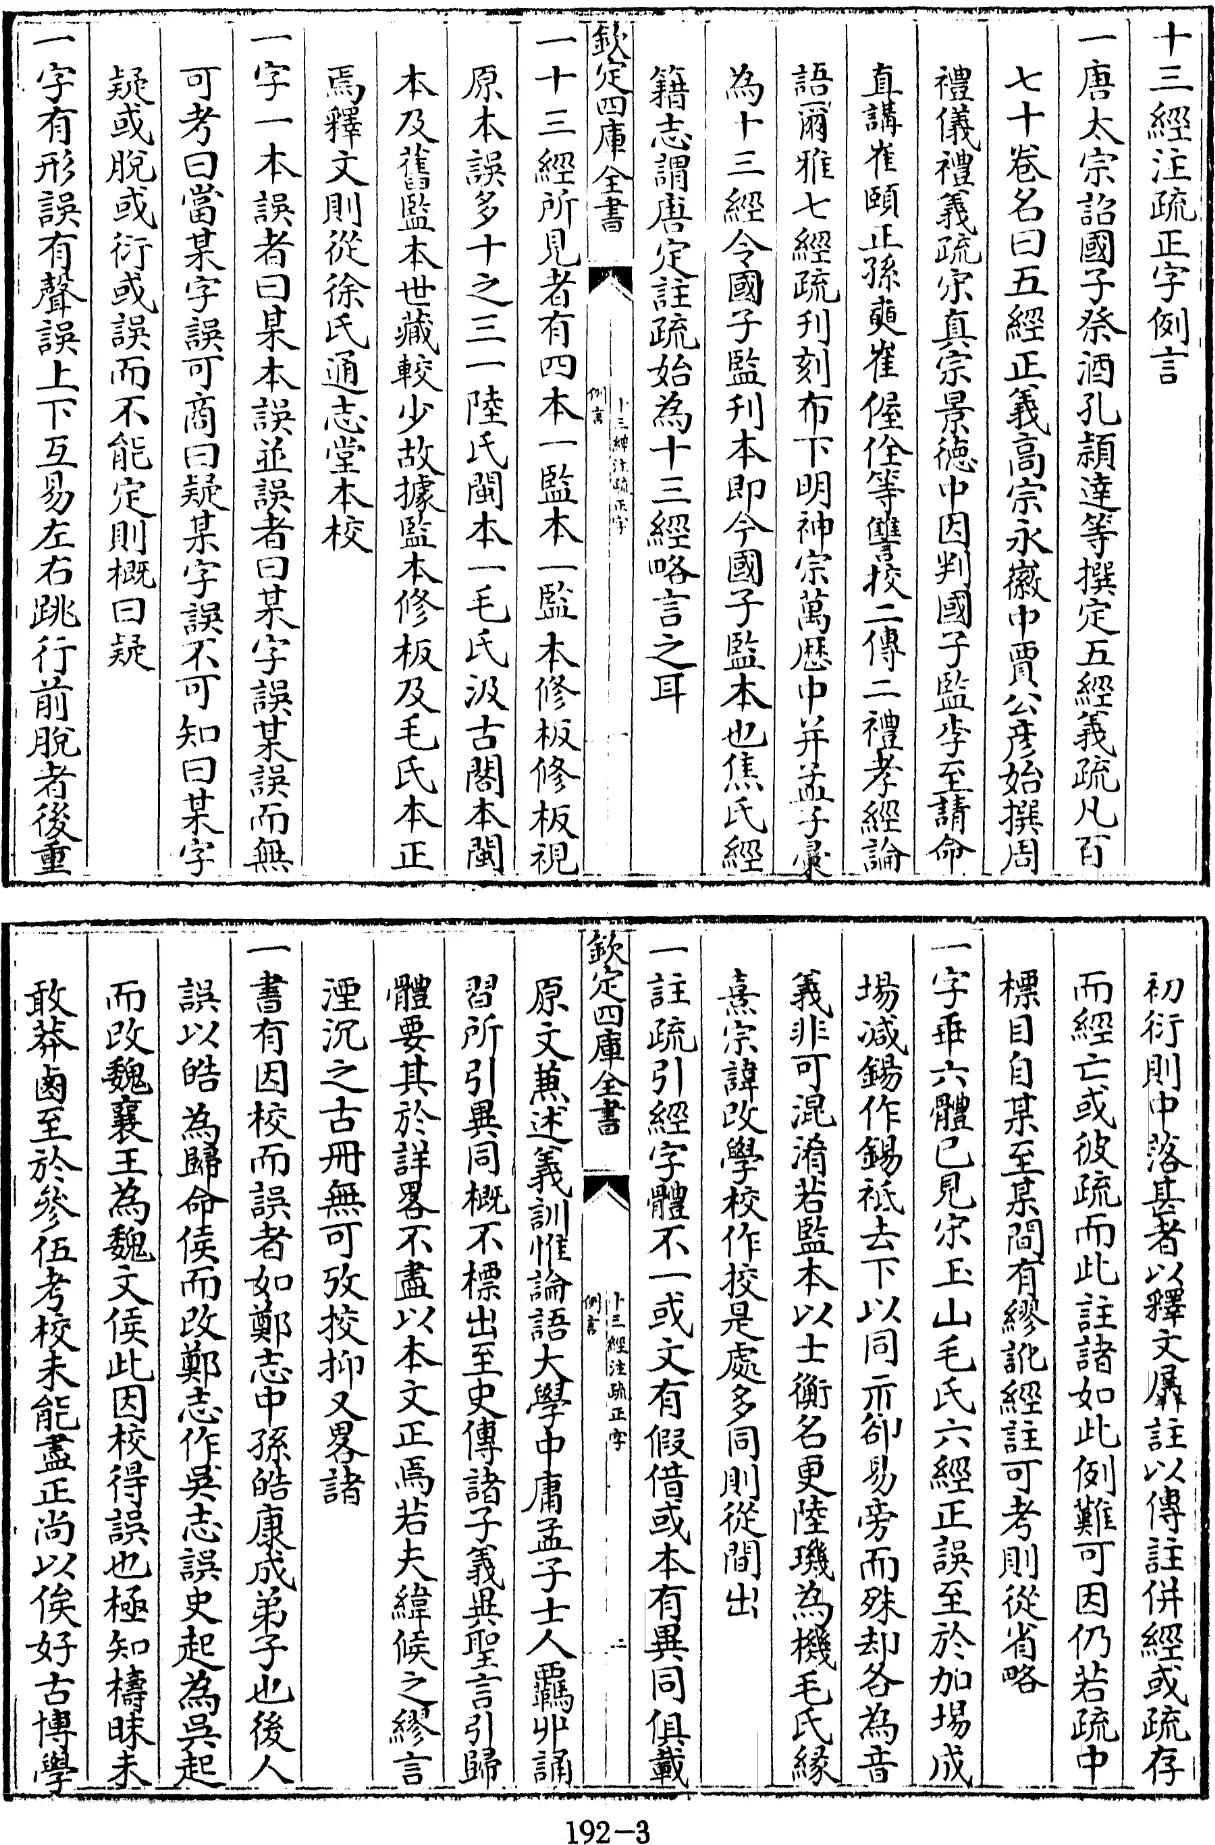 十三經注疏正字例言
一唐太宗詔國子祭酒孔穎達等撰定五經義疏凡百
七十卷名曰五經正義高宗永徽中賈公彦始撰周
禮儀禮義疏宋真宗景德中因判國子監李至請命
直講崔頤正孫奭崔偓佺等讐校二傳二禮孝經論
語爾雅七經疏刋刻布下明神宗萬歷中并孟子彚
為十三經令國子監刋本即今國子監本也焦氏經
籍志謂唐定註疏始為十三經略言之耳
欽定四庫全書
十三經注疏正字
例言
一
一十三經所見者有四本一監本一監本修板修板視
原本誤多十之三一陸氏閩本一毛氏汲古閣本閩
本及舊監本世藏較少故據監本修板及毛氏本正
焉釋文則從徐氏通志堂本校
一字一本誤者曰某本誤並誤者曰某字誤某誤而無
可考曰當某字誤可商曰疑某字誤不可知曰某字
疑或脫或衍或誤而不能定則概曰疑
一字有形誤有聲誤上下互易左右跳行前脫者後重
初衍則中落甚者以釋文羼註以傳註併經或疏存
而經亡或彼疏而此註諸如此例難可因仍若疏中
標目自某至某間有繆訛經註可考則從省略
一字垂六體已見宋玉山毛氏六經正誤至於加場成
塲减錫作鍚祗去下以同示卻易旁而殊却各為音
義非可混淆若監本以士衡名更陸璣為機毛氏緣
熹宗諱改學校作挍是處多同則從間出
一註疏引經字體不一或文有假借或本有異同俱載
欽定四庫全書
十三經注疏正字
例言
二
原文蕪述義訓惟論語大學中庸孟子士人覊丱誦
習所引異同概不標出至史傳諸子義異聖言引歸
體要其於詳畧不盡以本文正焉若夫緯候之繆言
湮沉之古冊無可攷挍抑又畧諸
一書有因校而誤者如鄭志中孫皓康成弟子也後人
誤以皓為歸命侯而改鄭志作吳志誤史起為吳起
而改魏襄王為魏文侯此因校得誤也極知檮昧未
敢莽鹵至於參伍考校未能盡正尚以俟好古博學
192-3